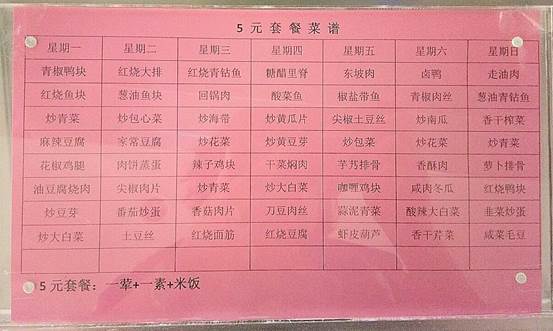 5 元 套 餐 菜 谱
星期一 星期二 星期三 星期四 星期五 星期六 星期日
青椒鸭块 红烧大排 红烧青鲇鱼 糖醋里脊 东坡肉 卤鸭 走油肉
红烧鱼块 葱油鱼块 回锅肉 酸菜鱼 椒盐带鱼 青椒肉丝 葱油青鲇鱼
炒青菜 炒包心菜 炒海带 炒黄瓜片 尖椒土豆丝 炒南瓜 香干榨菜
麻辣豆腐 家常豆腐 炒花菜 炒黄豆芽 炒包菜 炒花菜 炒青菜
花椒鸡腿 肉饼蒸蛋 辣子鸡块 干菜焖肉 芋艿排骨 香酥肉 萝卜排骨
油豆腐烧肉 尖椒肉片 炒青菜 炒大白菜 咖喱鸡块 咸肉冬瓜 红烧鸭块
炒豆芽 番茄炒蛋 香菇肉片 刀豆肉丝 蒜泥青菜 酸辣大白菜 韭菜炒蛋
炒大白菜 土豆丝 红烧面筋 红烧豆腐 虾皮葫芦 香干芹菜 咸菜毛豆
5 元套餐：一荤+一素+米饭